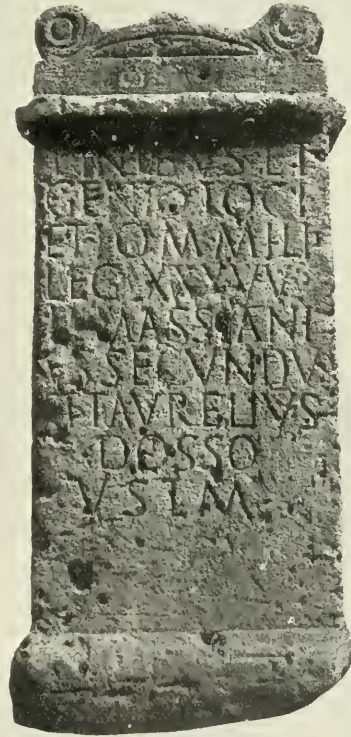 FINIBVS ET
GENIO LOCI
ET I O M MILIT
LEG XXX V V
M MASSIANI
VS SECVNDVS
ET T AVRELIVS
DOSSO
V S L M